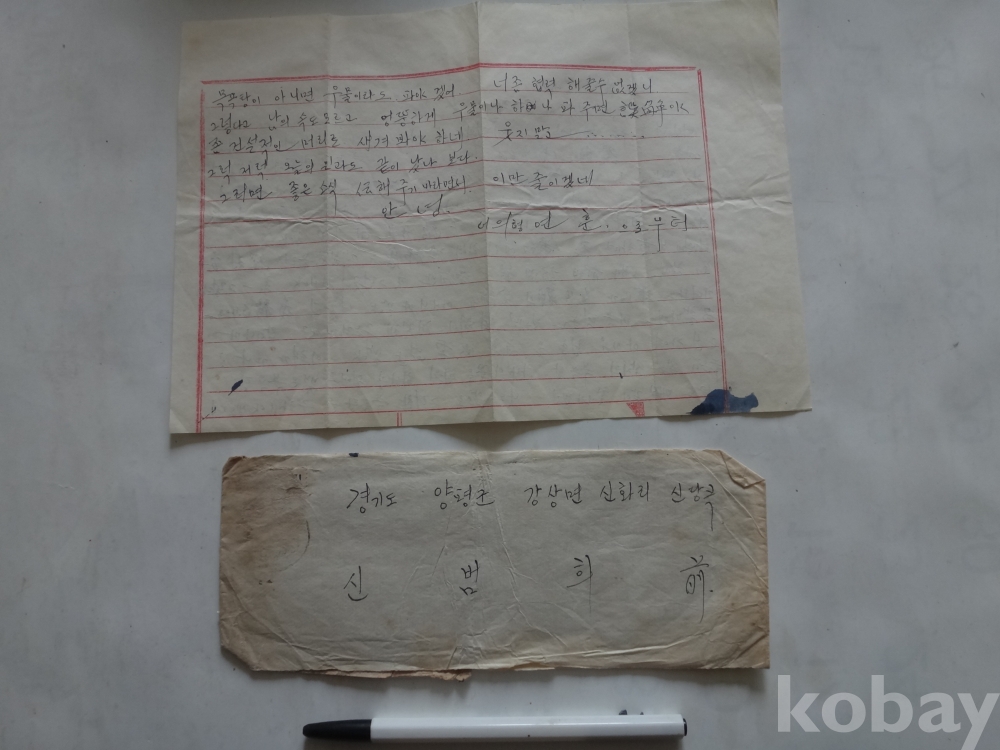 목욕탕이 아니면 우물이라도 파야 겠어 너준 협력 해 줄수 없겠니
그렇다고 남의 속도 모르고 엉뚱하게 우물이나 하나 파 주면
좀 건설적인 머리로 새겨 봐야 하네 웃지 말고 ........
그럭 저럭 오늘의 일과도 끝이 났나 보다.
그러면 좋은 소식 전해 주기 바라면서 이만 줄이겠네
안 녕.
훈. 으로 부터
경기도 양평군 강상면 신화리
신 범 희 前.
kobay